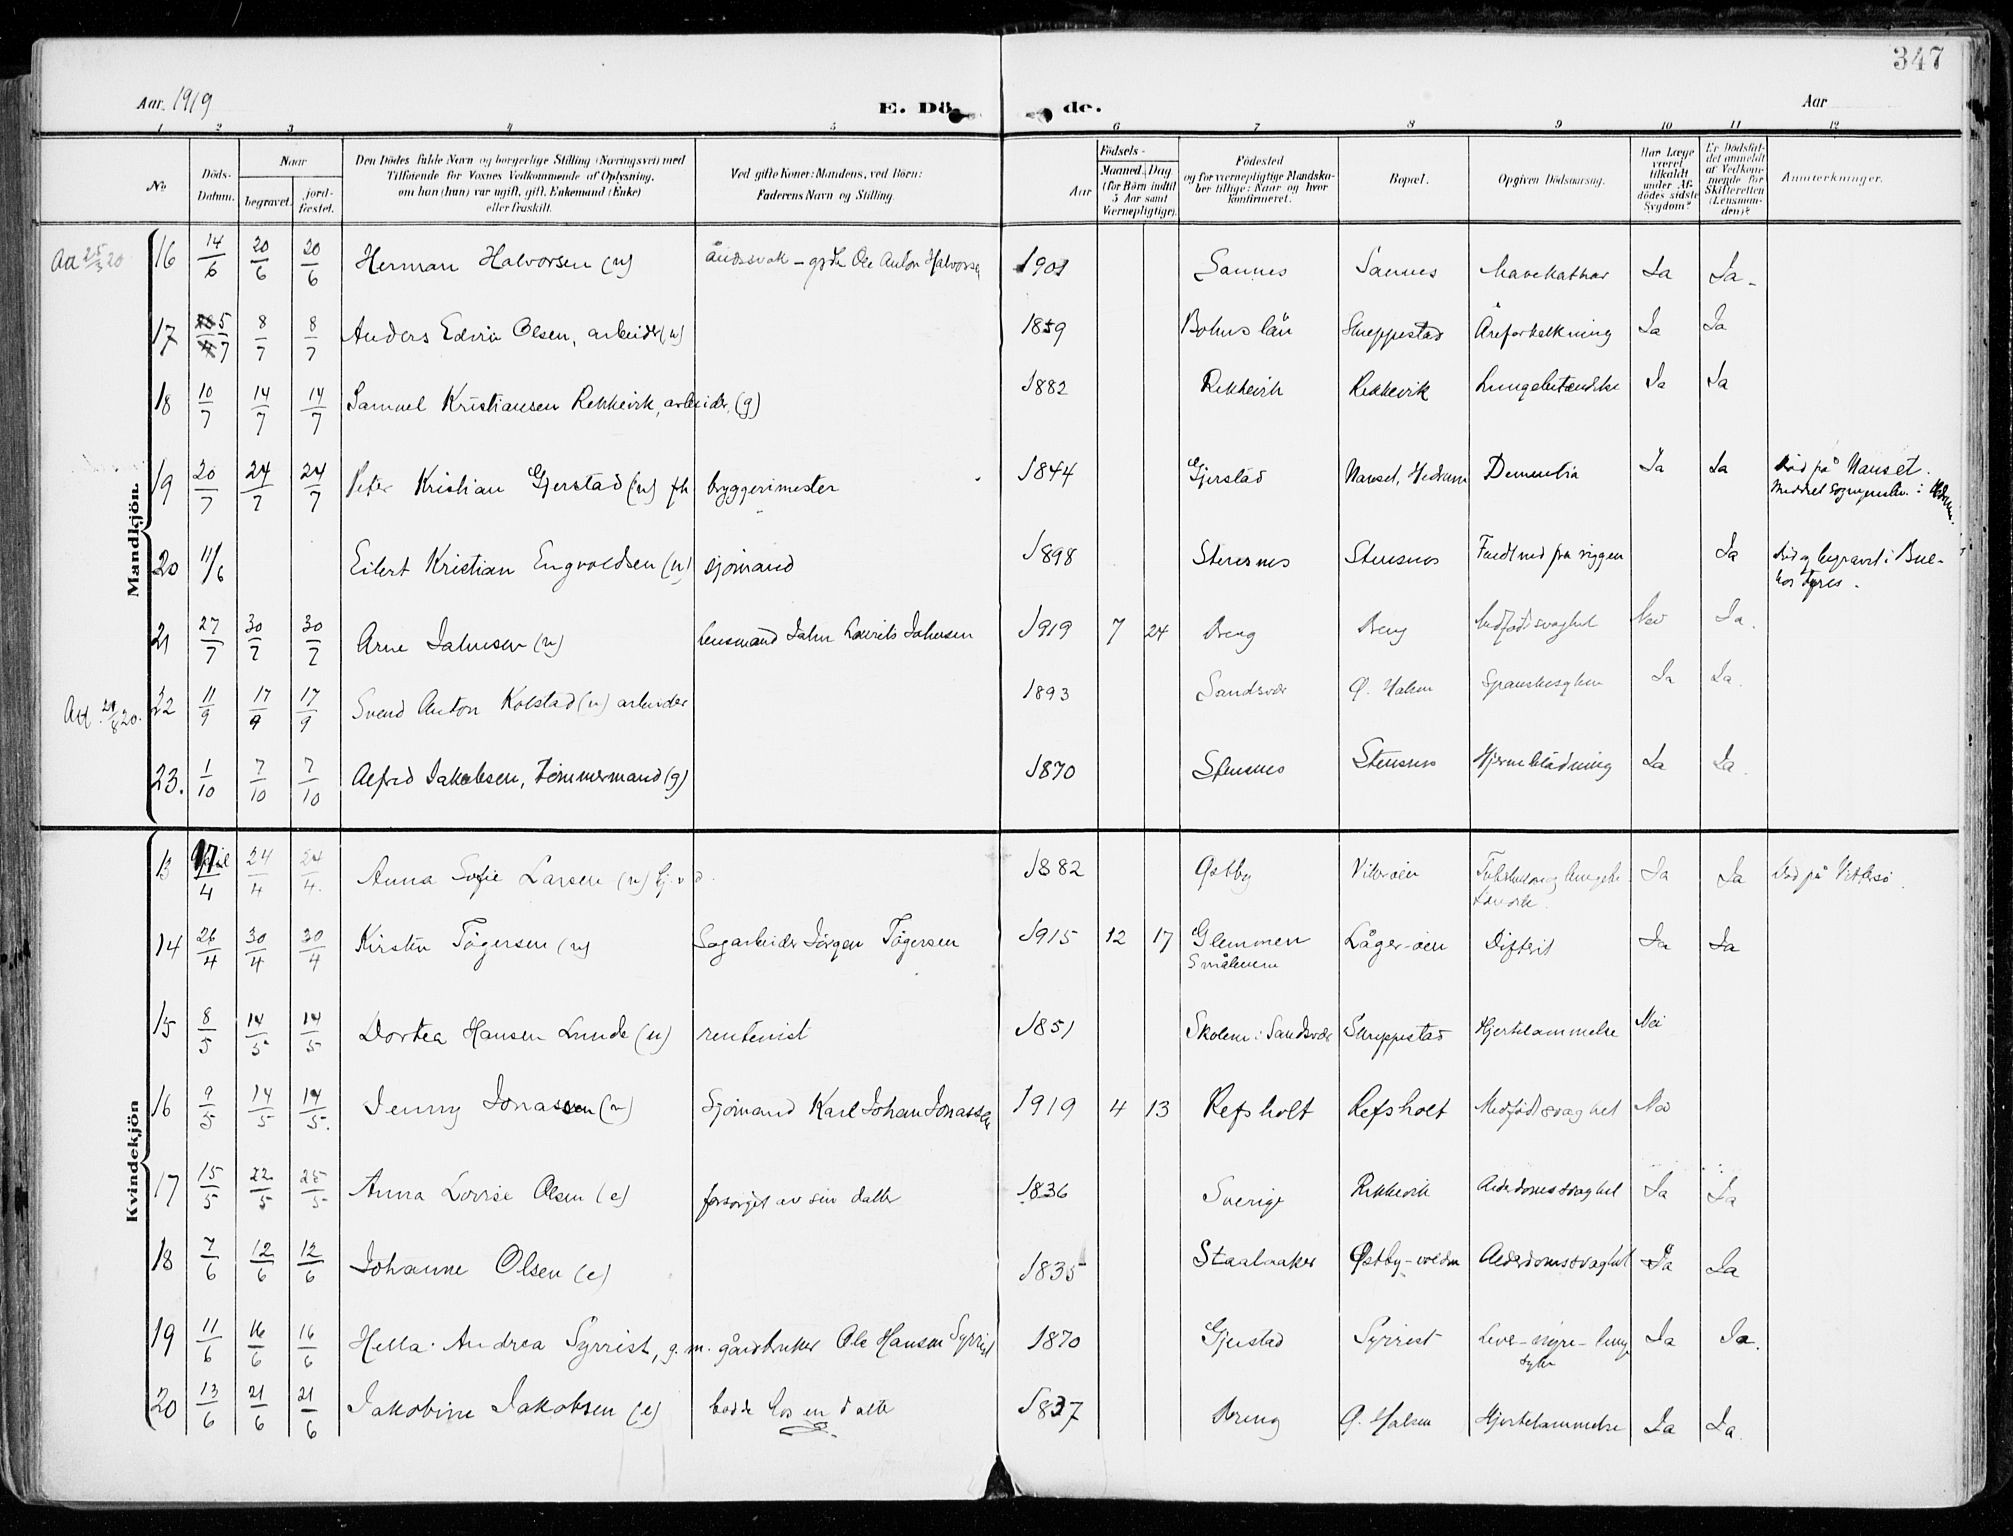 347
Aar 1919 E. Dö de. Aar
1 2 3 4 5 6 7 8 9 10 11 12
No Döds-Datum. Naar begravet. jord-fæstet. Den Dödes fulde Navn og borgerlige Stilling (Næringsvei) med Tilföiende for Voxnes Vedkommende af Oplysning, om han (hun) var ugift, gift, Enkemand (Enke) eller fraskilt. Ved gifte Koner: Mandens, ved Börn: Faderens Navn og Stilling. Födsels- Aar Maaned. Dag. (for Börn indtil 5 Aar samt Værnepligtige). Födested og for værnepligtige Mandskaber tillige: Naar og hvor konfirmeret. Bopæl. Opgiven Dödsaarsag. Har Læge været tilkaldt under Afdödes sidste Sygdom? Er Dödsfaldet anmeldt af Vedkommende for Skifteretten (Lensmanden)? Anmærkninger.
Mandkjön.
16 14/6 20/6 20/6 Herman Halvorsen (u) åndssvak – Ole Anton Halvorsen 1901 Sannes Sannes Mavekathar Ja Ja
17 5/7 8/7 8/7 Anders Edvin Olsen, arbeider (u) 1859 Bohus län Skreppestad Åreforkalkning Ja Ja
18 10/7 14/7 14/7 Samuel Kristiansen Rekkevik, arbeider, (g) 1882 Rekkevik Rekkevik Lungebetændelse Ja Ja
19 20/7 24/7 24/7 Peter Kristian Gjerstad (u) fh bryggerimester 1844 Gjerstad Nanset, Hedrum Dementia Ja Ja Död på Nanset.
20 11/6 Eilert Kristian Engvoldsen (u) sjömand 1898 Stensnes Stensnes Faldt ned fra riggen Ja Död og begravet i
21 27/7 30/7 30/7 Arne Jahnsen (u) lensmand Jahn Laurits Jahnsen 1919 7 24 Breng Breng Medfödt svaghet Nei Ja.
Att. 20. 22 11/9 17/9 17/9 Svend Anton Kolstad (u) arbeider 1893 Sandsvær Ø. Halsen Spanskesyken Ja Ja.
23. 1/10 7/10 7/10 Alfred Jakobsen, Tömmermand (g) 1870 Stensnes Stensnes Hjerneblödning Ja Ja.
Kvindekjön
13 17/4 24/4 24/4. Anna Sofie Larsen (u) 1882 Østby Ja Ja Död på Vittersö.
14 26/4 30/4 30/4 Kirsten Tögersen (u) Sagarbeider Jörgen Tögersen 1915 12 17 Glemmen
Smålenene Lågerøen Difterit Ja Ja
15 8/5 14/5 14/5 Dortea Hansen Lunde (u) rentenist 1851 Skolem i Sandsvær Skreppestad Hjertelammelse Nei
16 9/5 14/5 14/5. Jenny Jonassen (u) Sjömand Karl Johan Jonassen 1919 4 13 Refsholt Refsholt Medfödt svaghet Nei
17 15/5 22/5 25/5 Anna Lovise Olsen (e) forsörget av sin datter 1836 Sverige Rekkevik Alderdomssvaghet Ja Ja
18 7/6 12/6 12/6 Johanne Olsen (e) 1835 Staalaker Østby- Alderdomssvaghet Ja Ja
19 11/6 16/6 16/6 Hella Andrea Syrrist, g. m. gårdbruker Ole Hansen Syrrist 1870 Gjerstad Syrrist Lever-nyre-lunge
syke Ja Ja.
20 13/6 21/6 21/6 Jakobine Jakobsen (e) bodde hos en datter 1837 Breng Ø. Halsen Hjertelammelse Ja Ja.